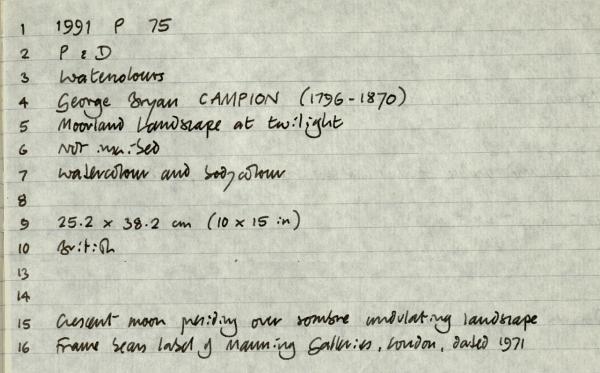 1 1991 P 75
2 P & D
3 Watercolours
4 George Bryan CAMPION (1796-1870)
5 Moorland Landscape at twilight
6 Not inscribed
7 Watercolour and bodycolour
8
9 25.2 x 38.2 cm (10 x 15 in)
10 British
13
14
15 Crescent moon presiding over sombre undulating landscape
16 Frame bears label of Manning Galleries, London, dated 1971